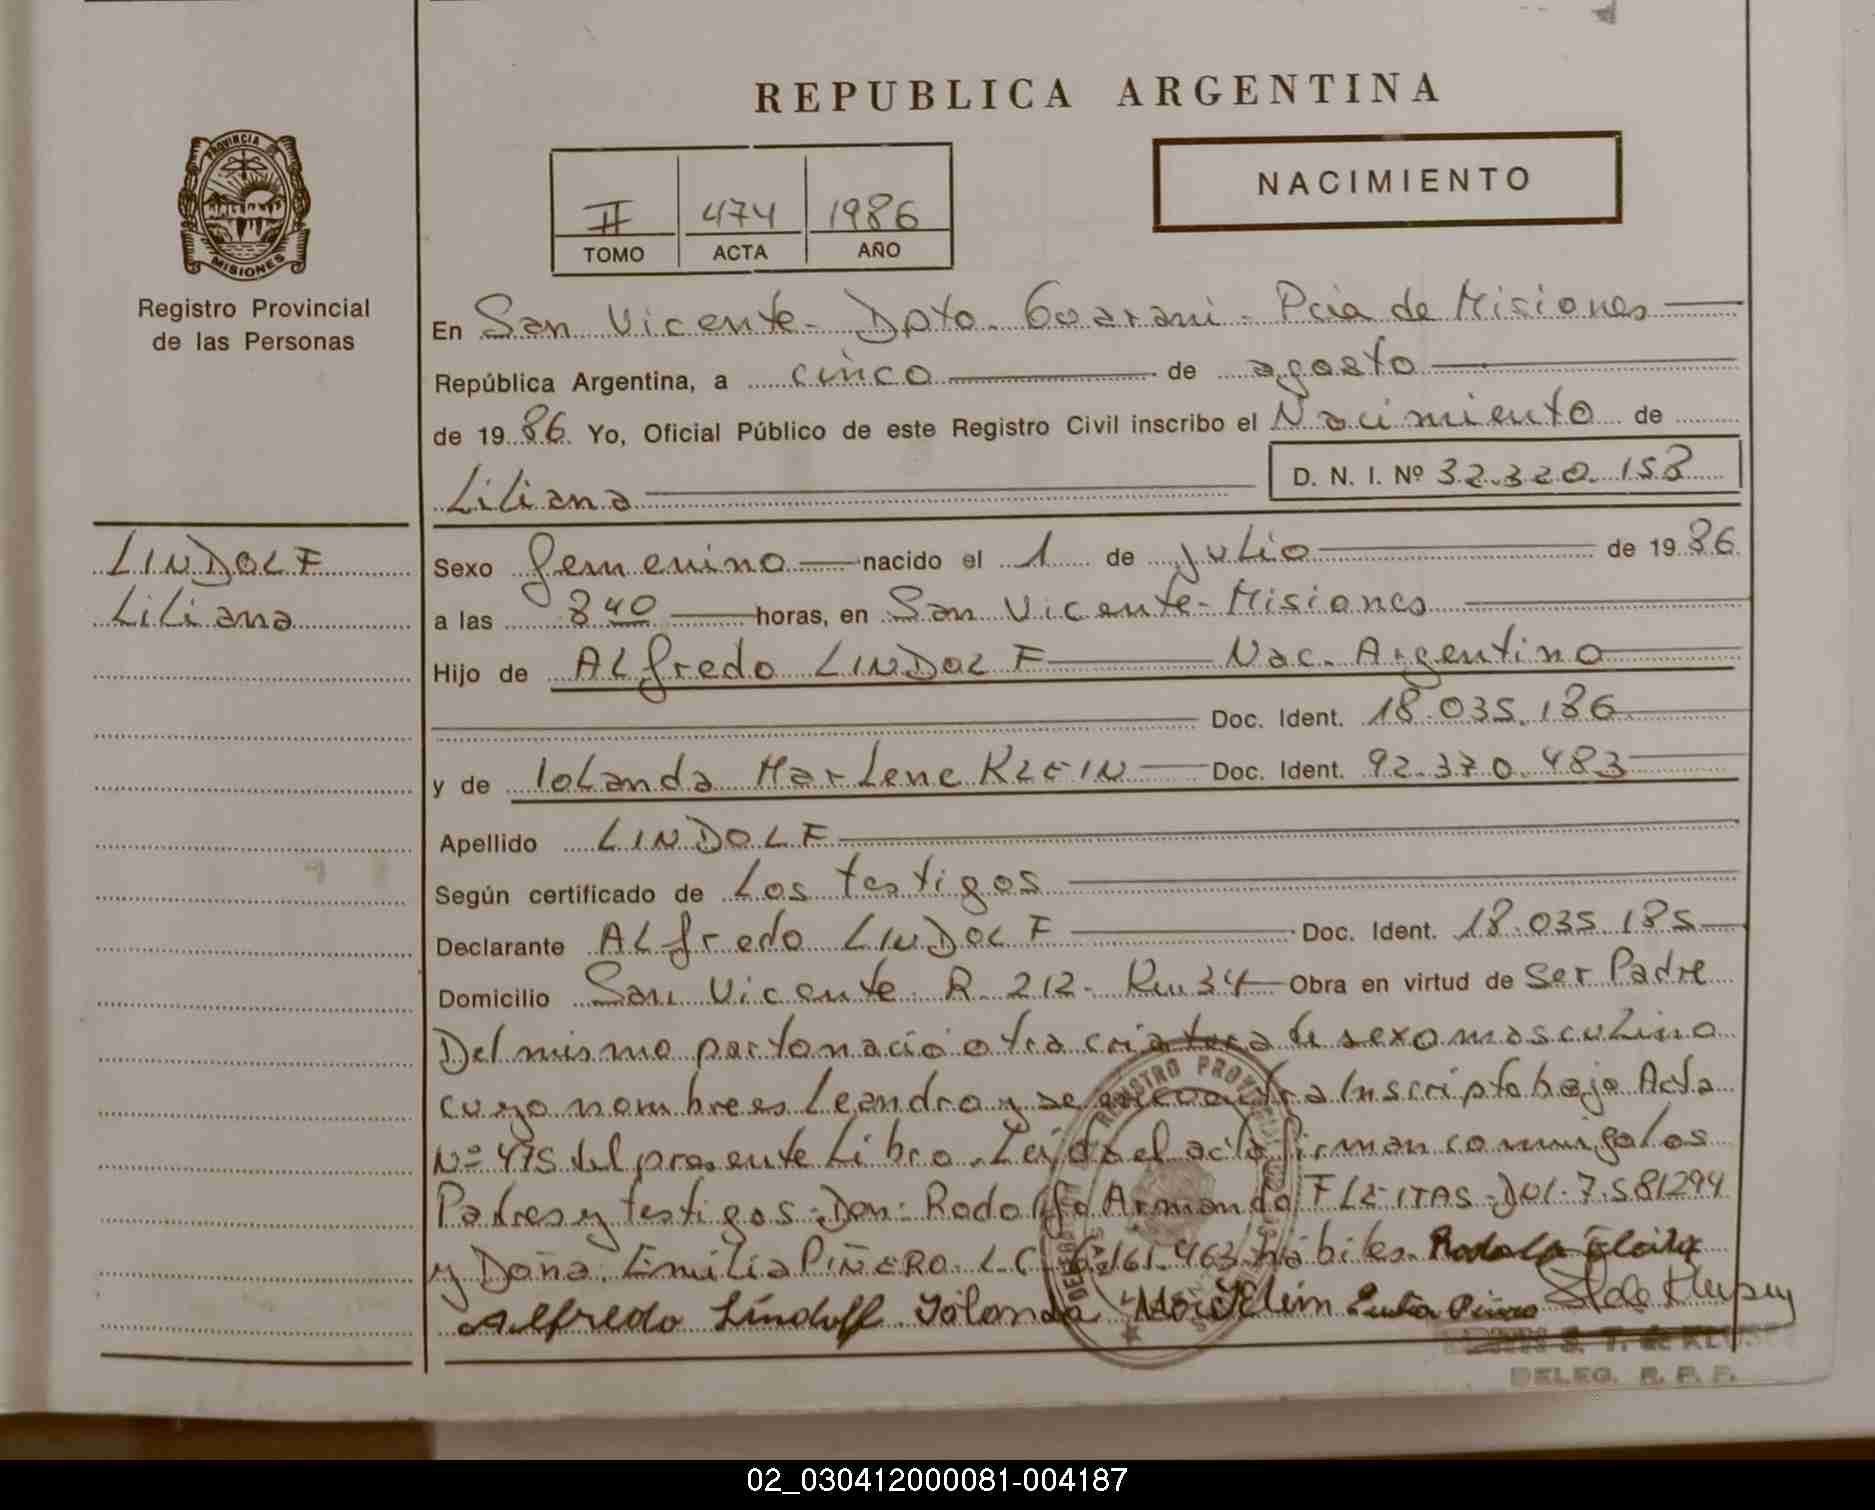 REPUBLICA ARGENTINA
PROVINCIA
MISIONES
Registro Provincial
de las Personas
II 474 1986
TOMO ACTA AÑO
NACIMIENTO
En San Vicente - Dpto. Guarani - Pcia de Misiones
República Argentina, a cinco de agosto
de 1986 Yo, Oficial Público de este Registro Civil inscribo el Nacimiento de
Liliana D. N. I. Nº 32.320.158
LINDOLF
Liliana
Sexo femenino nacido el 1 de julio de 1986
a las 8 40 horas, en San Vicente - Misiones
Hijo de ALfredo LINDOLF Nac. Argentino
Doc. Ident. 18.035.186
y de Iolanda Marlene KLEIN Doc. Ident. 92.370.483
Apellido LINDOLF
Según certificado de Los testigos
Declarante ALfredo LINDOLF Doc. Ident. 18.035.185
Domicilio San Vicente R. 212 - Km 34 Obra en virtud de Ser Padre
Del mismo parto nació otra criatura de sexo masculino
cuyo nombre es Leandro y se encuentra Inscripto bajo Acta
Nº 475 del presente Libro. Leída el acta firman conmigo los
Padres y testigos: Don: Rodolfo Armando FLEITAS - DNI. 7.581294
y Doña: Emilia PIÑERO L.C. 6.161.463 hábiles. Rodolfo Fleita
Alfredo Lindolf Iolanda Klein
REGISTRO
DELEG. R. P. P.
02_030412000081-004187